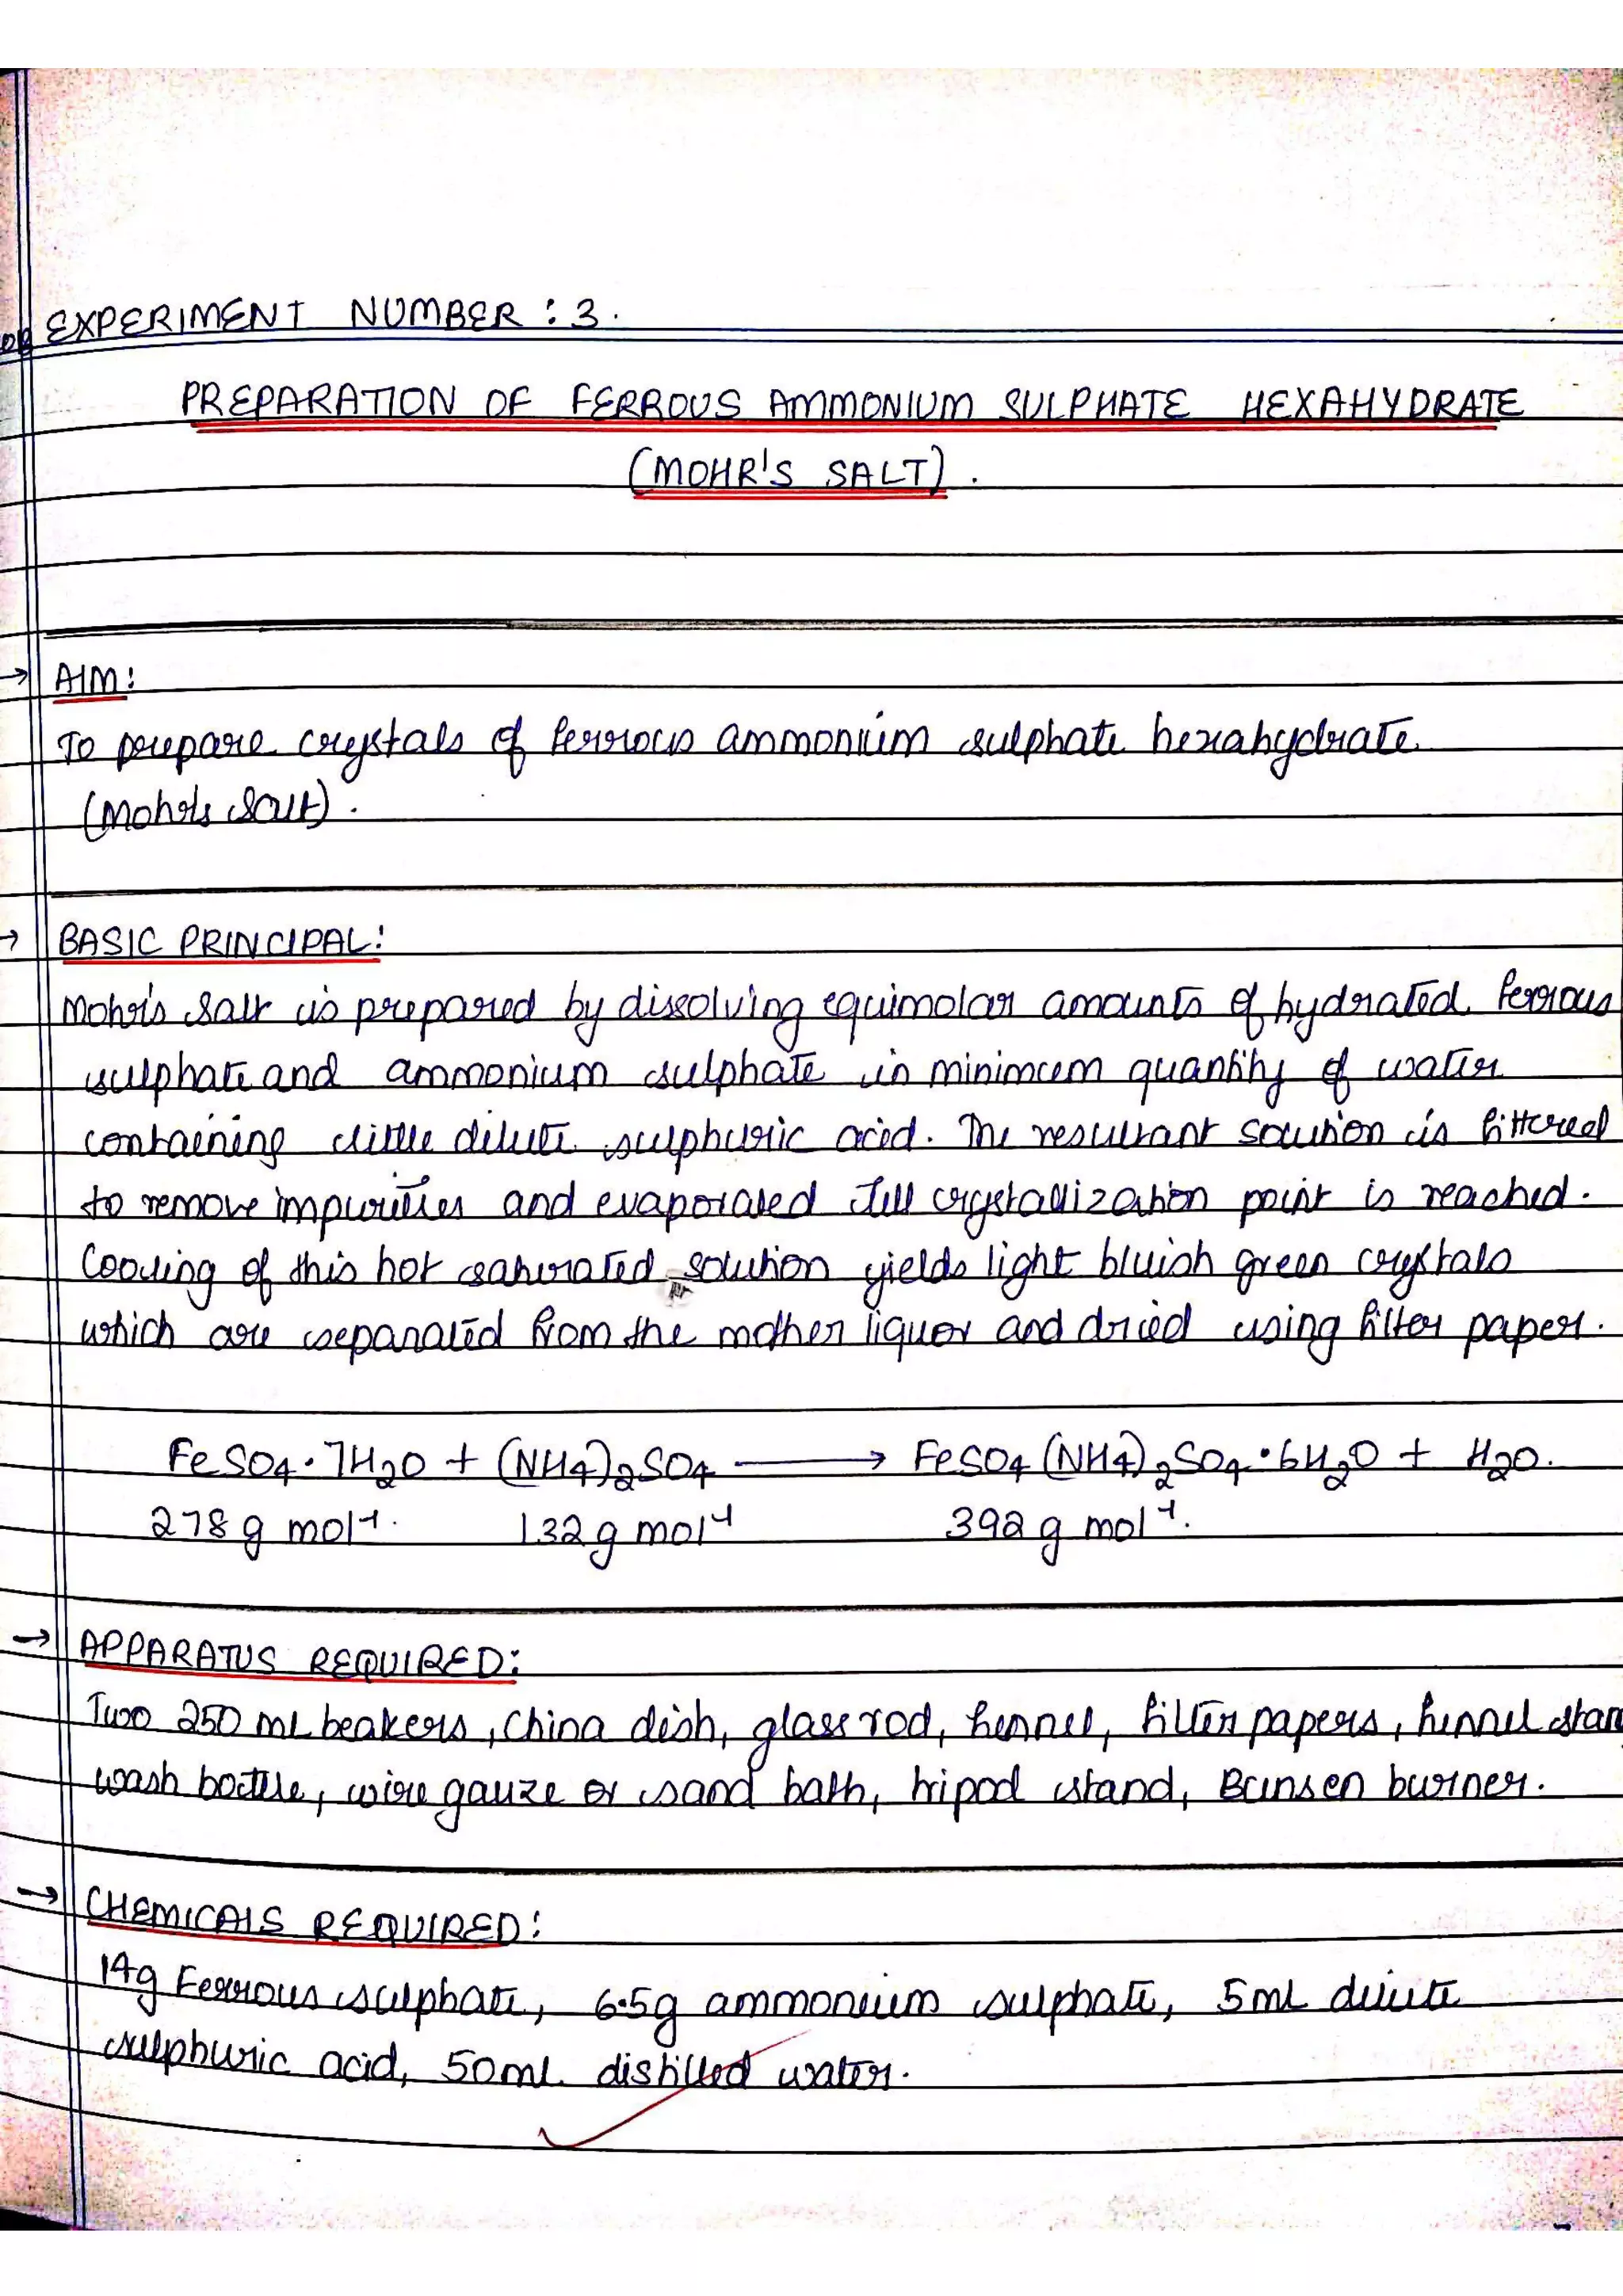 EXPERIMENT NUMBER : 3.
PREPARATION OF FERROUS AMMONIUM SULPHATE HEXAHYDRATE
(MOHR'S SALT).
→ AIM:
To prepare crystals of ferrous ammonium sulphate hexahydrate
(Mohr's Salt).
→ BASIC PRINCIPAL:
Mohr's Salt is prepared by dissolving equimolar amounts of hydrated ferrous
sulphate and ammonium sulphate in minimum quantity of water
containing little dilute sulphuric acid. The resultant solution is filtered
to remove impurities and evaporated till crystallization point is reached.
Cooling of this hot saturated solution yields light bluish green crystals
which are separated from the mother liquor and dried using filter paper.
FeSO4·7H2O + (NH4)2SO4 ⟶ FeSO4(NH4)2SO4·6H2O + H2O.
278 g mol⁻¹. 132 g mol⁻¹ 392 g mol⁻¹.
→ APPARATUS REQUIRED:
Two 250 mL beakers, China dish, glass rod, funnel, filter papers, funnel stan
wash bottle, wire gauze or sand bath, tripod stand, Bunsen burner.
→ CHEMICALS REQUIRED:
14g Ferrous sulphate, 6.5g ammonium sulphate, 5mL dilute
sulphuric acid, 50mL distilled water.